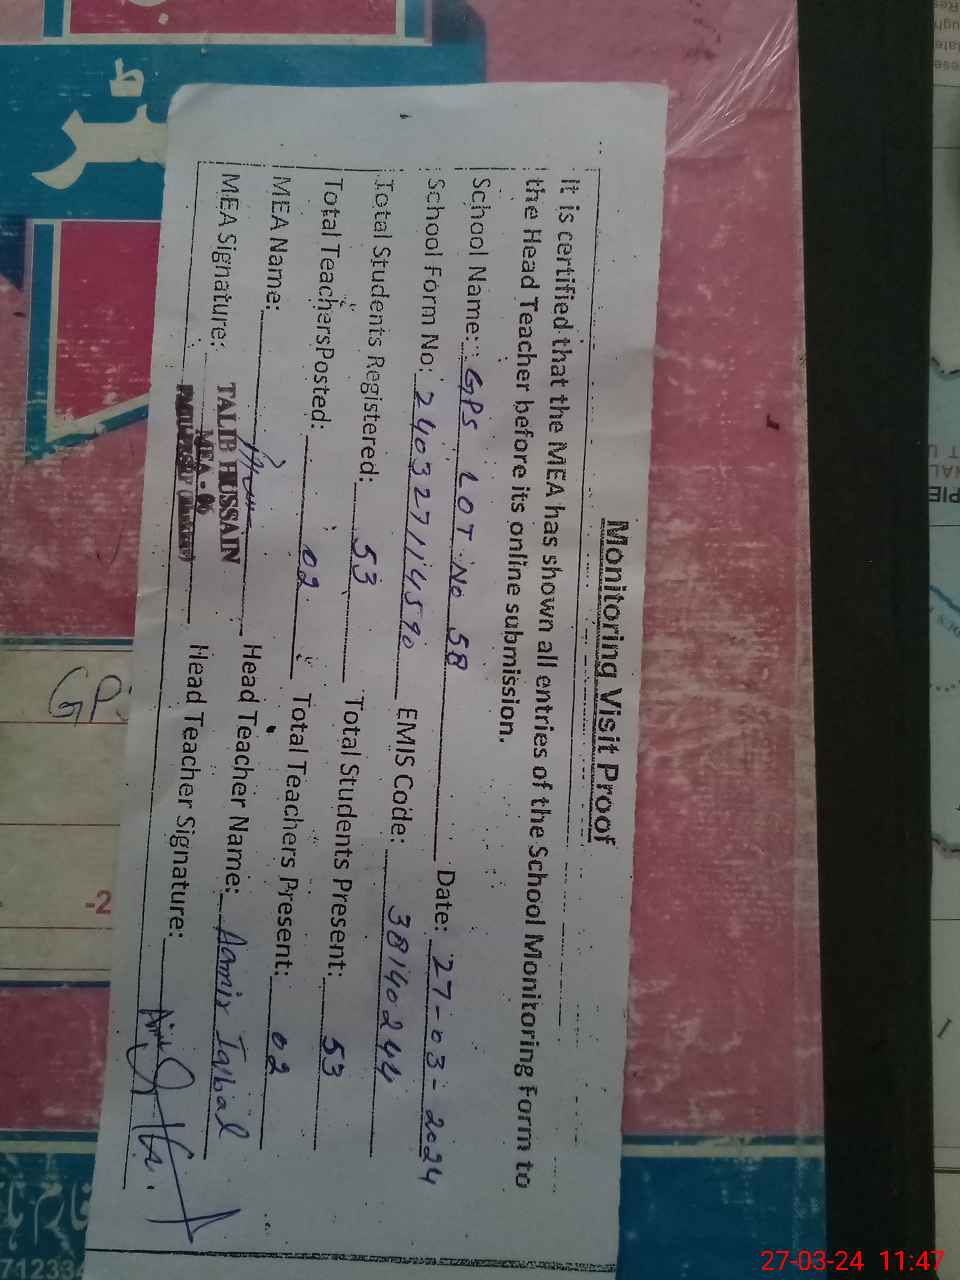 Monitoring Visit Proof
It is certified that the MEA has shown all entries of the School Monitoring Form to
the Head Teacher before its online submission.
School Name: GPS LOT No 58 Date: 27-03-2024
School Form No: 240327114590 EMIS Code: 38140244
Total Students Registered: 53 Total Students Present: 53
Total TeachersPosted: 02 Total Teachers Present: 02
MEA Name: Head Teacher Name: Aamir Iqbal
MEA Signature: TALIB HUSSAIN Head Teacher Signature:
MEA - 06
GP
-2
71233
27-03-24 11:47